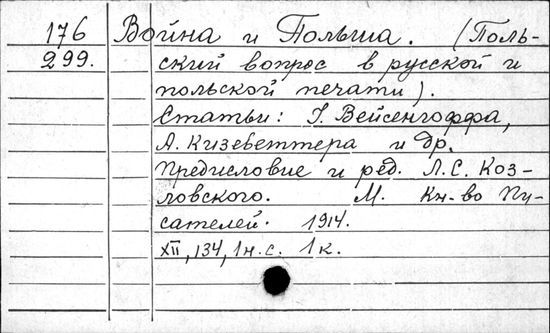 176 Война и Польша. (Поль-
299. ский вопрос в русской и
польской печати).
Статьи: I. Вейсенгоффа,
А. Кизеветтера и др.
Предисловие и ред. Л.С. Коз-
ловского. М. Кн-во Пи-
сателей. 1914.
XII, 134, 1 н.с. 1 к.